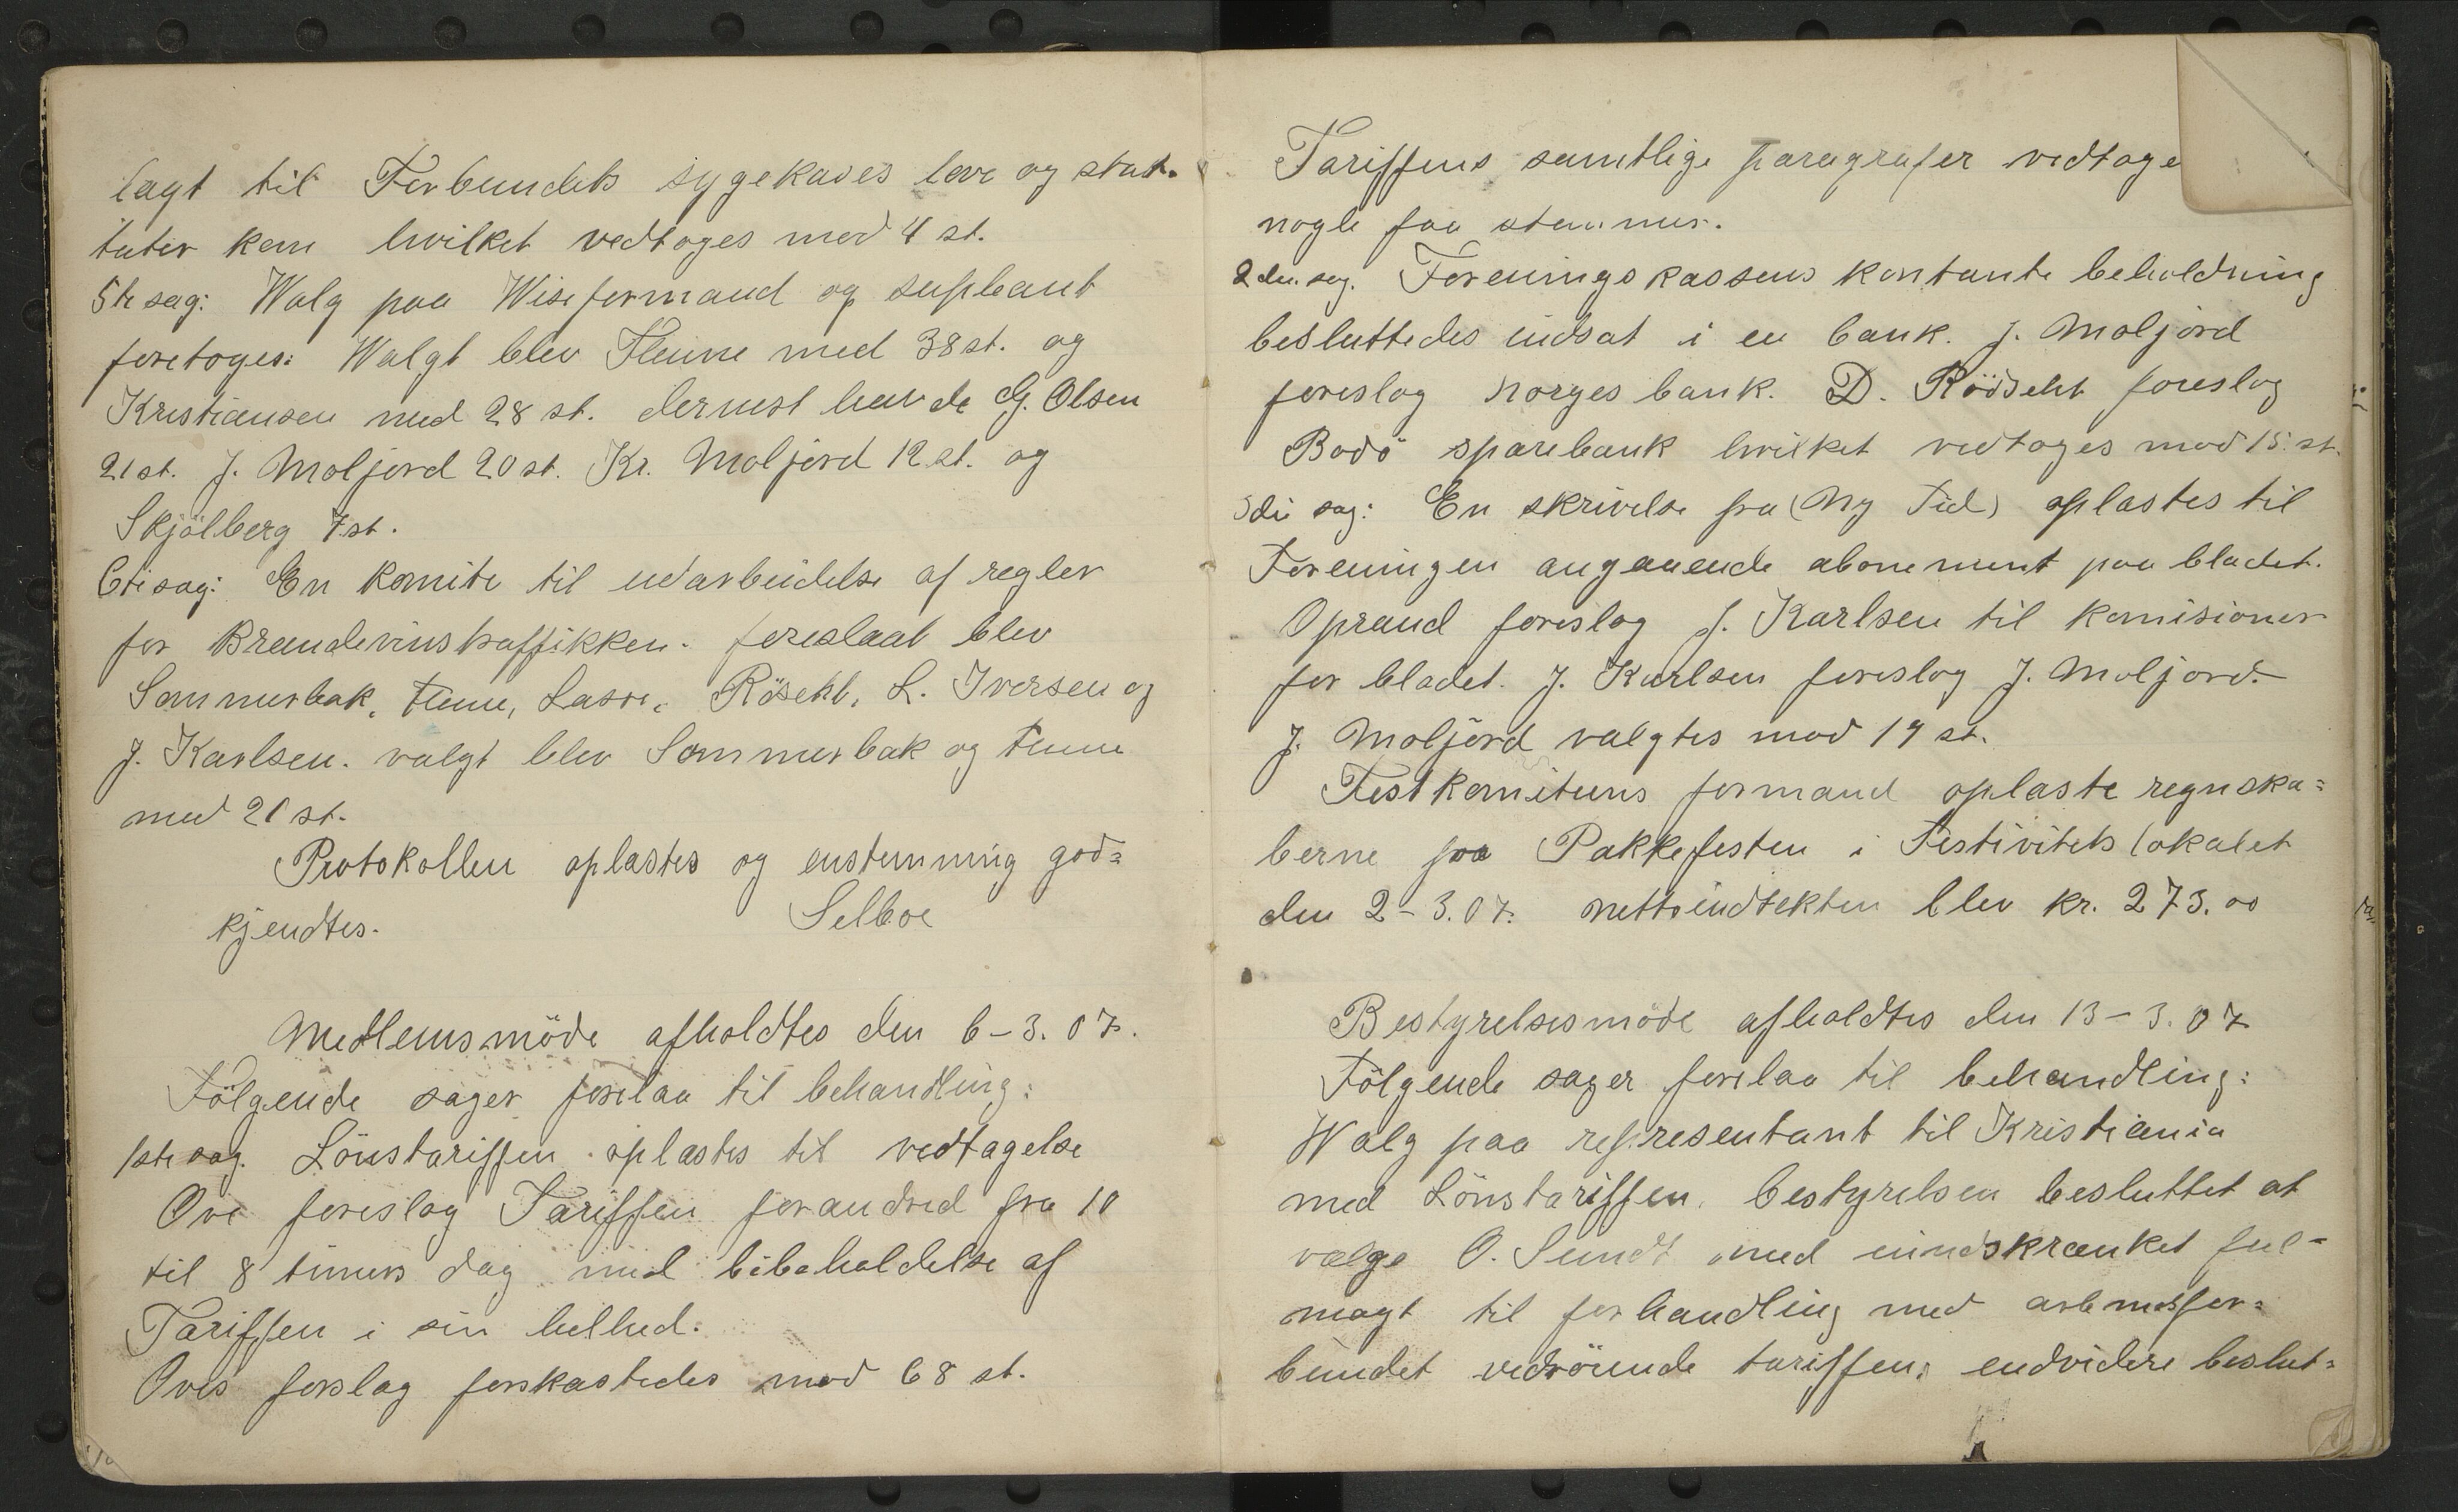 lagt til Forbundets sygekases love og stat-
tuter kom hvilket vedtoges mod 4 st.
5te sag: Walg paa Wiseformand og supleant
foretoges: Walgt blev Flenne med 38 st. og
Kristiansen med 28 st. dernest havde G. Olsen
21 st. J. Moljord 20 st. Kr. Moljord 12 st. og
Skjölberg 7 st.
6te sag: En komite til udarbeidelse af regler
for Brændevinstraffikken. foreslaat blev
Sommerbak, Flenne, Lasse, Rösekt, L. Iversen og
J. Karlsen. valgt blev Sommerbak og Flenne
med 21 st.
Protokollen oplæstes og enstemmig god=
kjendtes.
Selboe
Medlemsmöde afholdtes den 6-3.07.
Fölgende sager forelaa til behandling:
1ste sag. Lönstariffen oplæstes til vedtagelse
Ove foreslog Tariffen forandred fra 10
til 8 timers dag med bibeholdelse af
Tariffen i sin helhed.
Oves forslag forkastedes mod 68 st.
Tariffens samtlige paragrafer vedtoge
nogle faa stemmer.
2den sag. Foreningskassens kontante beholdning
besluttedes indsat i en bank. J. Moljord
foreslog Norges bank. D. Rödsekt foreslog
Bodö sparebank hvilket vedtoges mod 15. st.
3die sag: En skrivelse fra (Ny Tid) oplæstes til
Foreningen angaaende abonement paa bladet.
Oprand foreslog J. Karlsen til komisionær
for bladet. J. Karlsen foreslog J. Moljord.
J. Moljord valgtes mod 19 st.
Festkomiteens formand oplæste regnska=
berne fra Pakkefesten i Festivitets lokalet
den 2-3.07. nettoindtekten blev kr. 273.00
Bestyrelsesmöde afholdtes den 13-3.07
Fölgende sager forelaa til behandling:
Walg paa representant til Kristiania
med Lönstariffen. bestyrelsen besluttet at
vælge O. Sundt med uindskrænket ful-
magt til forhandling med arb.mandsfor=
bundet vedrörende tariffen, endvidere beslut=